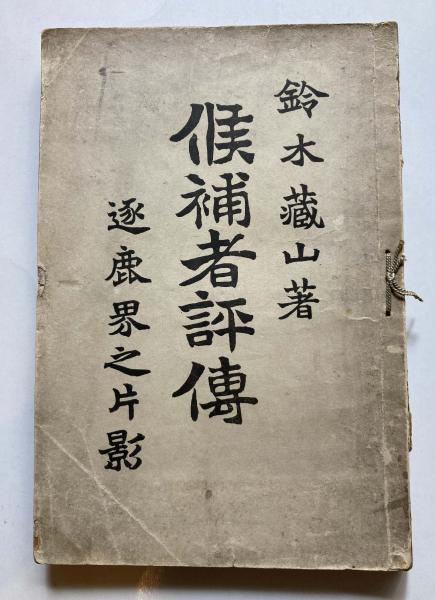 鈴木藏山著
候補者評傳
逐鹿界之片影